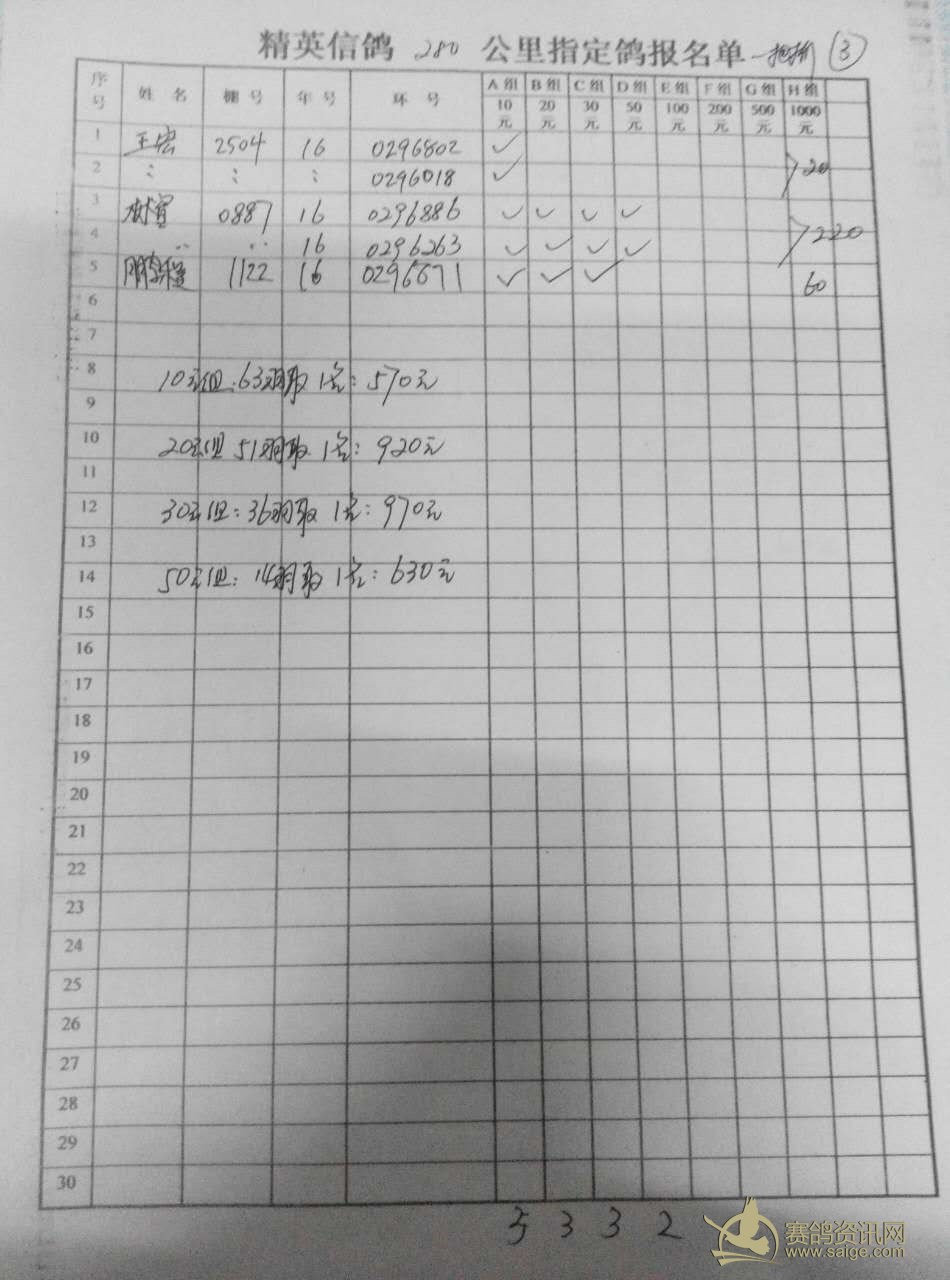 精英信鸽 280 公里指定鸽报名单 ③
序号 姓名 棚号 年号 环号 A组 B组 C组 D组 E组 F组 G组 H组
10元 20元 30元 50元 100元 200元 500元 1000元
1 王宏 2504 16 0296802 ✓
2 : : : 0296018 ✓ 20
3 0887 16 0296886 ✓ ✓ ✓ ✓
4 16 0296263 ✓ ✓ ✓ ✓ 220
5 1122 16 0296671 ✓ ✓ ✓ 60
6
7
8 10元组:63羽取1名:570元
9
10 20元组 51羽取1名:920元
11
12 30元组:36羽取1名:970元
13
14 50元组:14羽取1名:630元
15
16
17
18
19
20
21
22
23
24
25
26
27
28
29
30
5 3 3 2
赛鸽资讯网
www.saige.com